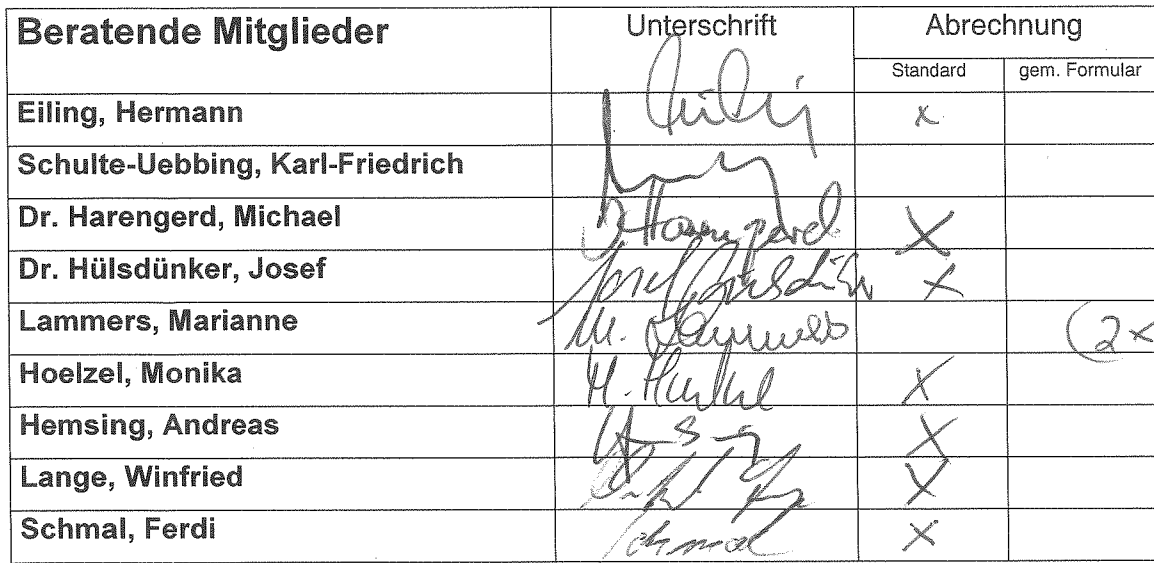 Beratende Mitglieder Unterschrift Abrechnung
Standard gem. Formular
Eiling, Hermann x
Schulte-Uebbing, Karl-Friedrich
Dr. Harengerd, Michael X
Dr. Hülsdünker, Josef X
Lammers, Marianne M. Lammers (2x
Hoelzel, Monika X
Hemsing, Andreas X
Lange, Winfried X
Schmal, Ferdi Schmal X